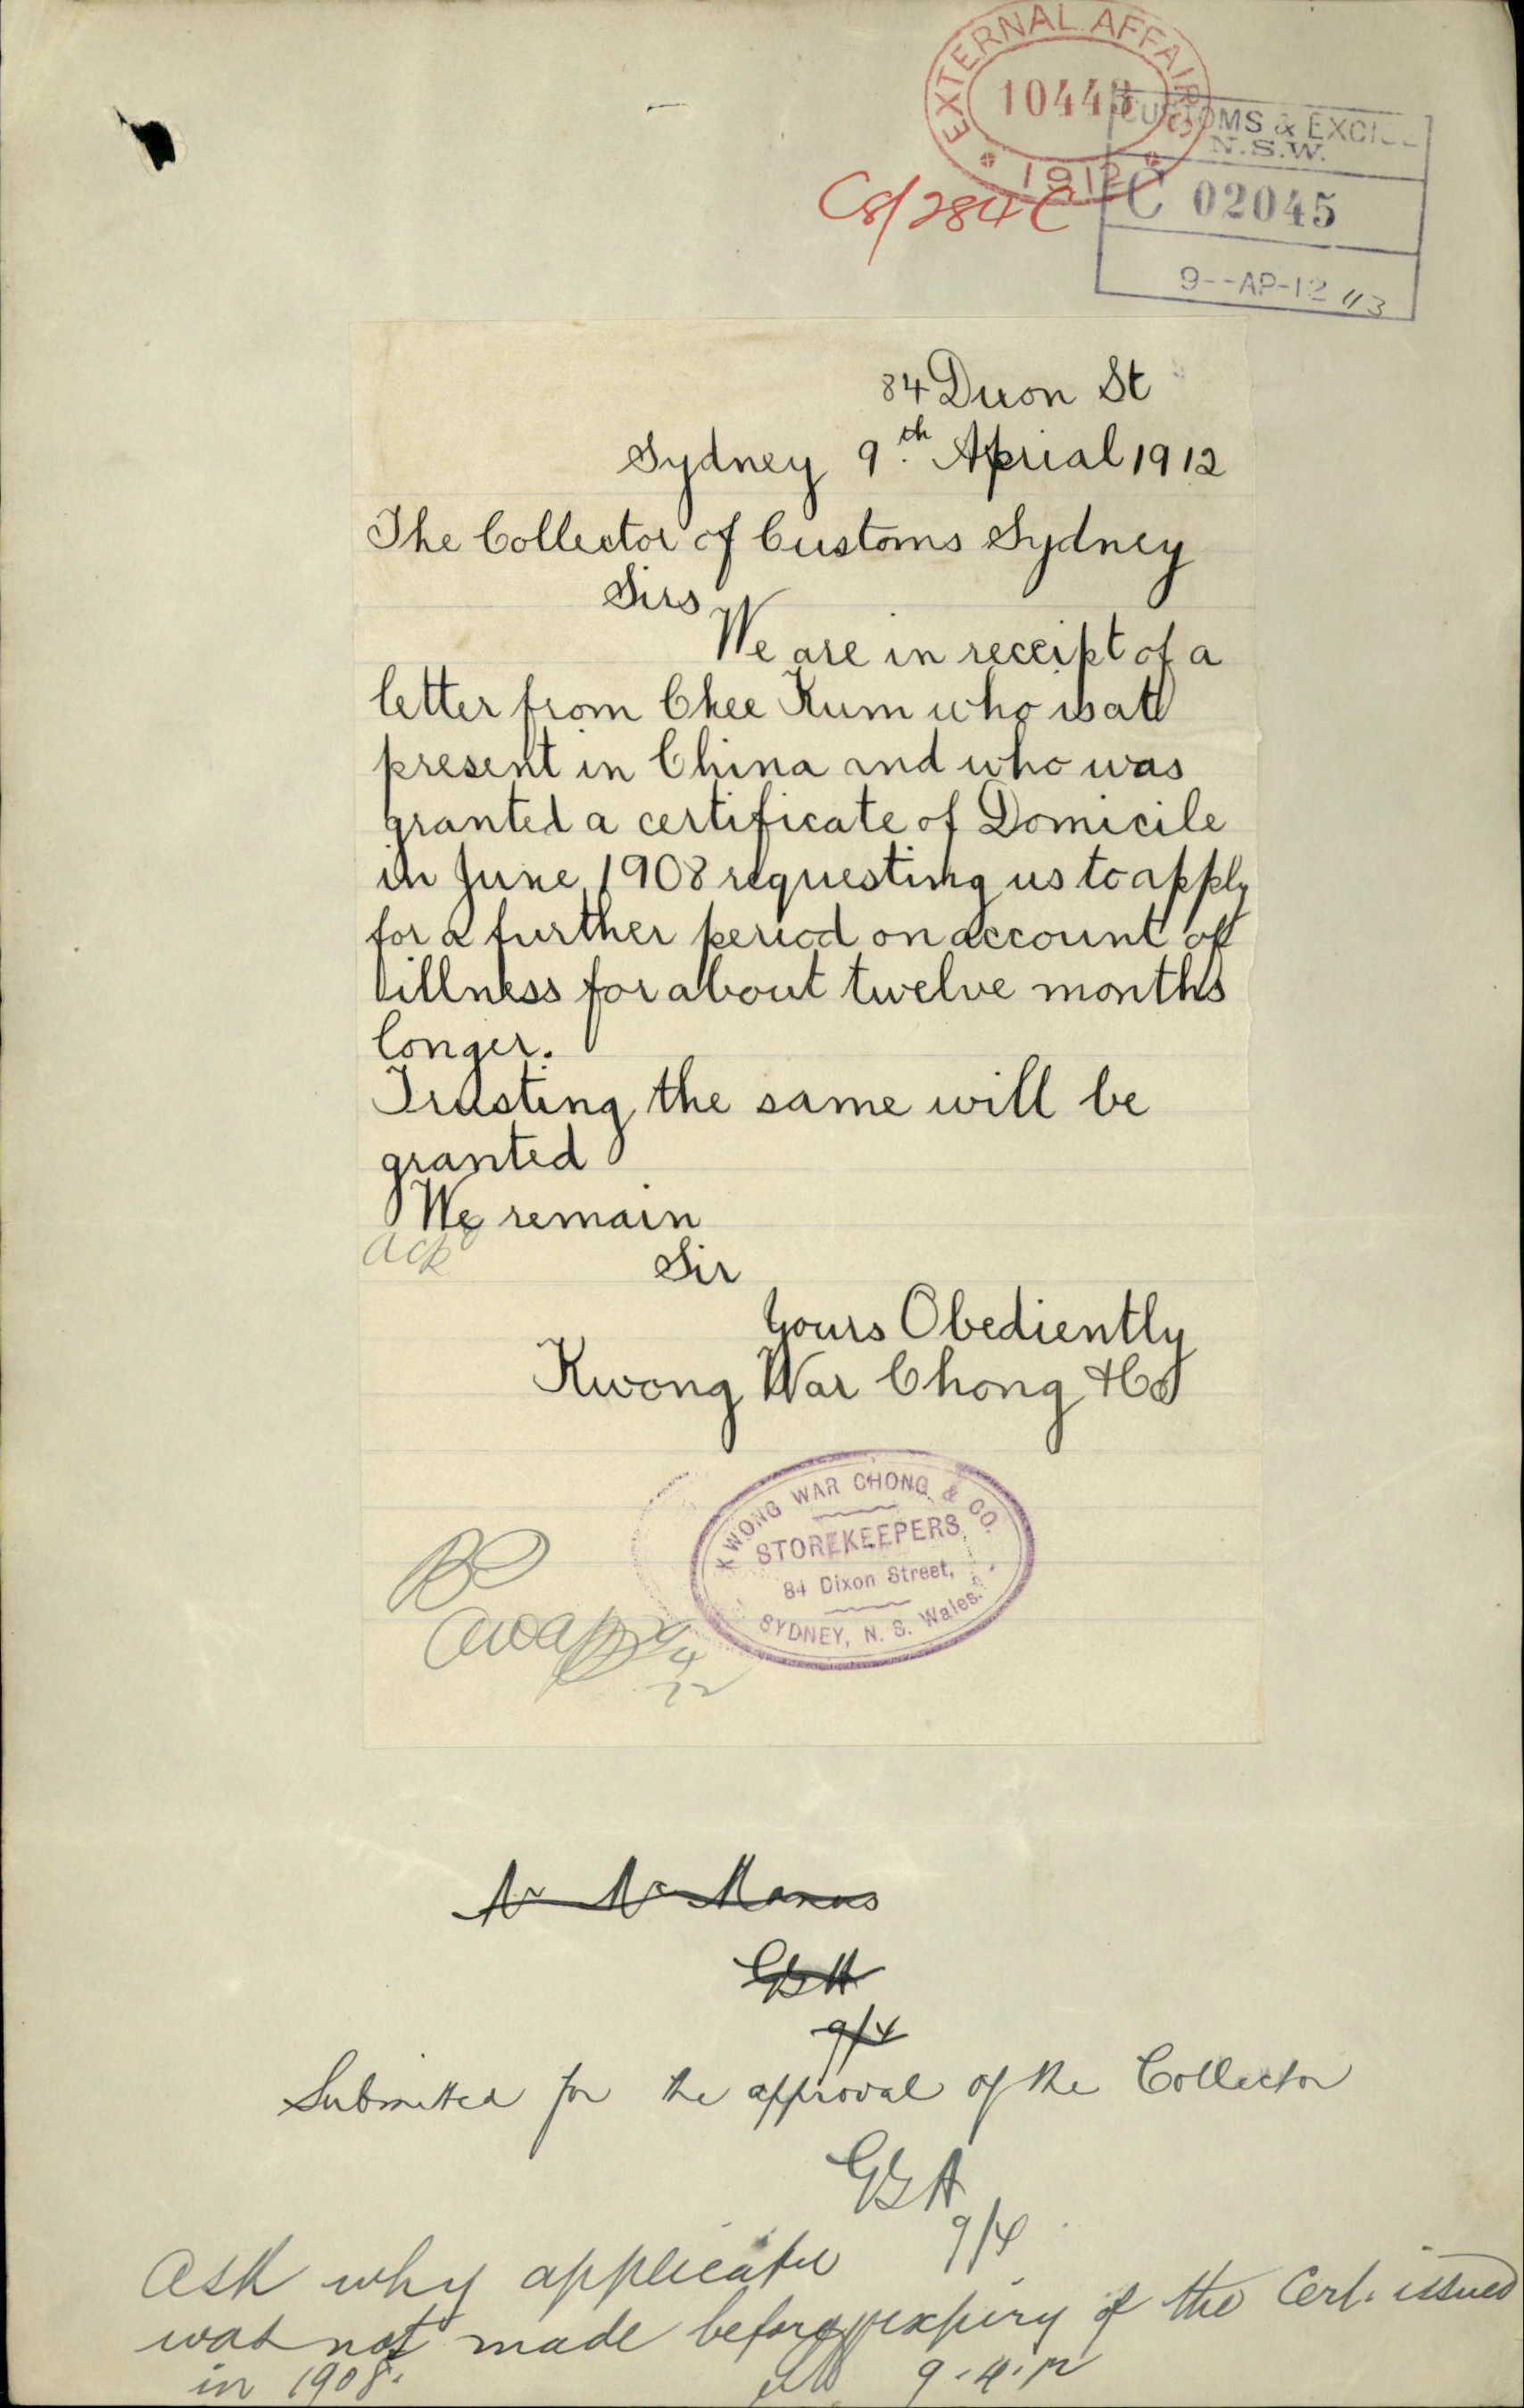 EXTERNAL AFFAIRS
10443
1912
C8/284C
CUSTOMS & EXCISE
N.S.W.
C 02045
9--AP-12
84 Dixon St
Sydney 9th Aprial 1912
The Collector of Customs Sydney
Sirs
We are in receipt of a
letter from Chee Kum who is at
present in China and who was
granted a certificate of Domicile
in June 1908 requesting us to apply
for a further period on account of
illness for about twelve months
longer.
Trusting the same will be
granted
We remain
ack
Sir
Yours Obediently
Kwong War Chong & Co
KWONG WAR CHONG & CO.
STOREKEEPERS,
84 Dixon Street,
SYDNEY, N. S. Wales.
Mr McManus
GBH
9/4
Submitted for the approval of the Collector
GBH
9/4
Ask why applicatn
was not made before expiry of the Cert. issued
in 1908.
9.4.12